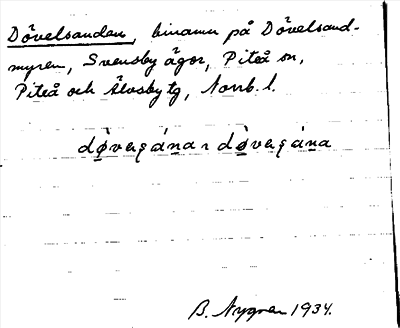 Dövelsanden, binamn på Dövelsand-
myren, Svensby ägor, Piteå sn,
Piteå och Älvsby tg, Norrb. l.
B. Nygren 1934.